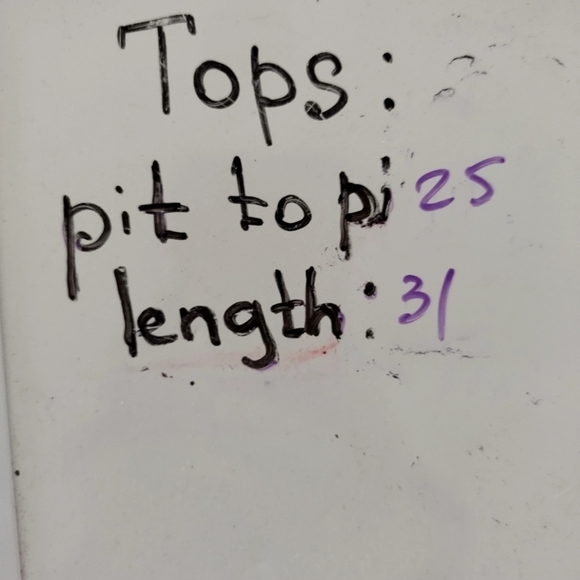 Tops:
pit to pi 25
length: 31